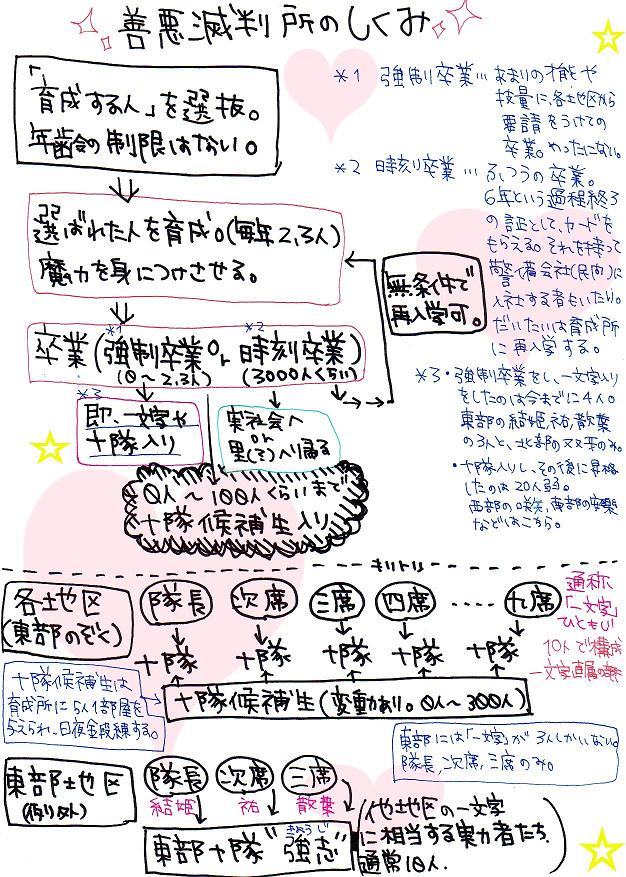 善悪滅判所のしくみ
「育成する人」を選抜。
年齢の制限はない。
選ばれた人を育成。(毎年2,3人)
魔力を身につけさせる。
無条件で
再入学可。
*1 *2
卒業(強制卒業or時刻卒業)
(0～2,3人) (3000人くらい)
*3
即、一文字や
十隊入り
実社会へ
or
里(?)入り帰る
0人～100人くらいまで
十隊候補生入り
*1 強制卒業…あまりの才能や
技量に、各土地区から
要請をうけての
卒業。めったにない。
*2 時刻卒業…ふつうの卒業。
6年という過程終了
の証として、カードを
もらえる。それを持って
警備会社(民間)に
入社する者もいたり。
だいたいは育成所
に再入学する。
*3・強制卒業をし、一文字入り
をしたのは今までに4人。
東部の結姫、祐、散葉
の3人と、北部の
・十隊入りし、その後に昇格
したのは20人弱。
西部の 東部の
などはこちら。
キリトリ
各土地区
(東部のぞく)
隊長 次席 三席 四席 ‥‥ 九席
十隊 十隊 十隊 十隊 十隊
十隊候補生(変動あり。0人～300人)
通称
「一文字」
ひともじ
10人で構成
一文字直属の部
十隊候補生は
育成所に5人1部屋を
与えられ、日夜鍛練する。
東部には「一文字」が3人しかいない。
隊長、次席、三席のみ。
東部土地区
(例外)
隊長 次席 三席
結姫 祐 散葉
きょうじ
東部十隊“強志”
他地区の一文字
に相当する実力者たち。
通常10人。